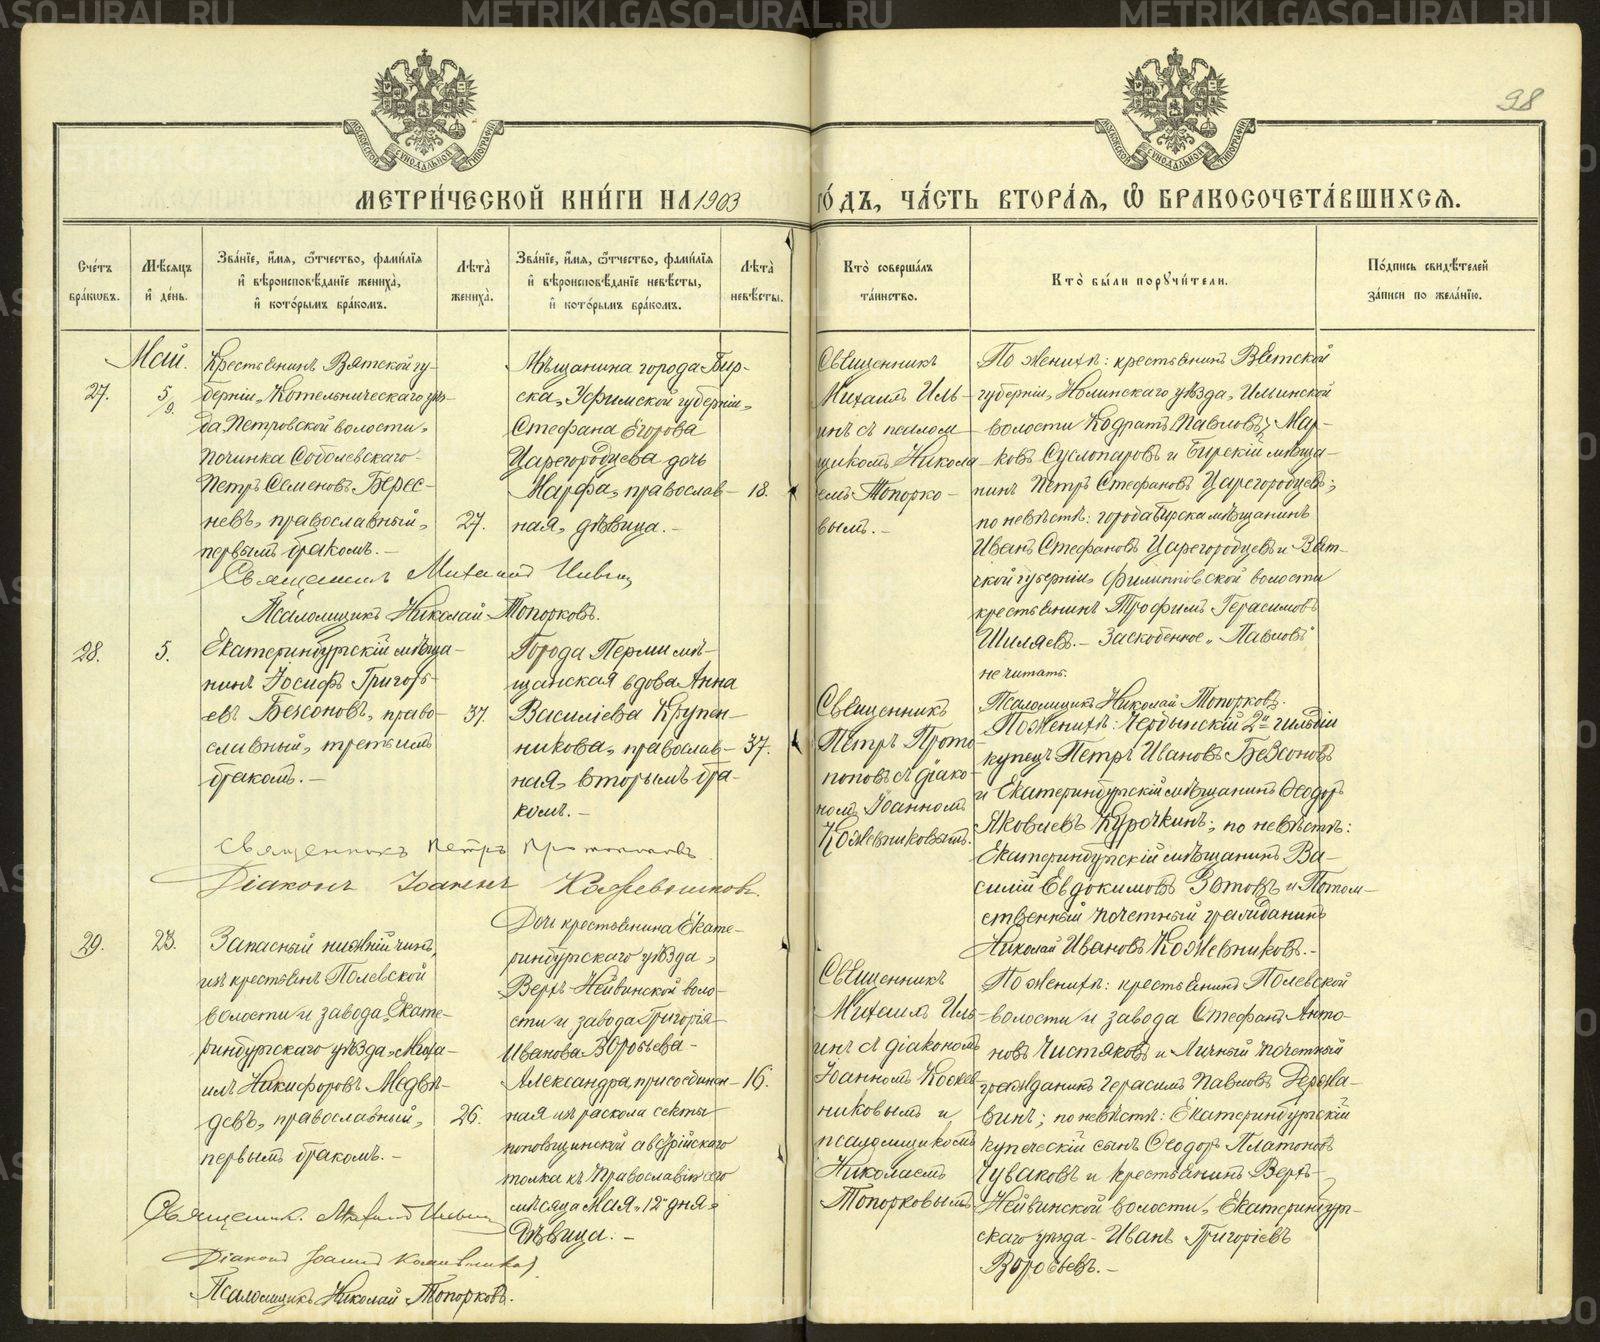 98
МЕТРИ́ЧЕСКОЙ КНИ́ГИ НА 1903 ГО́ДЪ, ЧА́СТЬ ВТОРА́Я, Ѡ БРАКОСОЧЕТА́ВШИХСЯ.
Сче́тъ бра́ковъ.
Мѣ́сяцъ и де́нь.
Зва́нїе, и́мя, ѻ́тчество, фами́лїя и вѣроисповѣ́данїе жениха̀, и кото́рымъ бра́комъ.
Лѣта̀ жениха̀.
Зва́нїе, и́мя, ѻ́тчество, фами́лїя и вѣроисповѣ́данїе невѣ́сты, и кото́рымъ бра́комъ.
Лѣта̀ невѣ́сты.
Кто̀ соверша́лъ та́инство.
Кто̀ бы́ли порꙋчи́тели.
По́дпись свидѣ́телей за́писи по жела́нїю.
Май.
27.
5/9.
Крестьянинъ Вятской гу-
берніи, Котельническаго уѣз-
да Петровской волости,
починка Соболевскаго
Петръ Семеновъ Берес-
невъ, православный,
первымъ бракомъ. –
27.
Мѣщанина города Бир-
ска, Уфимской губерніи,
Стефана Егорова
Царегородцева дочь
Марфа, православ-
ная, дѣвица. –
18.
Священникъ
Михаилъ Иль-
инъ съ псалом-
щикомъ Никола-
емъ Топорко-
вымъ. –
По женихѣ: крестьянинъ Вятской
губерніи, Нолинскаго уѣзда, Ильинской
волости Кодратъ (Павловъ) Мар-
ковъ Суслопаровъ и Бирскій мѣща-
нинъ Петръ Стефановъ Царегородцевъ;
по невѣстѣ: города Бирска мѣщанинъ
Иванъ Стефановъ Царегородцевъ и Вят-
ской губерніи, Филипповской волости
крестьянинъ Трофимъ Герасимовъ
Шиляевъ. – Заскобенное „Павловъ"
не читать.
Псаломщикъ Николай Топорковъ.
Священникъ Михаилъ Ильинъ
Псаломщикъ Николай Топорковъ.
28.
5.
Екатеринбургскій мѣща-
нинъ Іосифъ Григорь-
евъ Безсоновъ, право-
славный, третьимъ
бракомъ. –
37.
Города Перми мѣ-
щанская вдова Анна
Василіева Крупен-
никова, православ-
ная, вторымъ бра-
комъ. –
37.
Священникъ
Петръ Прото-
поповъ съ діако-
номъ Іоанномъ
Кожевниковымъ.
По женихѣ: Чердынскій 2й гильдіи
купецъ Петръ Ивановъ Безсоновъ
и Екатеринбургскій мѣщанинъ Ѳеодоръ
Яковлевъ Курочкинъ; по невѣстѣ:
Екатеринбургскій мѣщанинъ Ва-
силій Евдокимовъ Зотовъ и Потом-
ственный почетный гражданинъ
Николай Ивановъ Кожевниковъ. –
Священникъ Петръ Протопоповъ
Діаконъ Іоаннъ Кожевниковъ.
29.
23.
Запасный нижній чинъ,
изъ крестьянъ Полевской
волости и завода, Екате-
ринбургскаго уѣзда, Миха-
илъ Никифоровъ Медвѣ-
девъ, православный,
первымъ бракомъ. –
26.
Дочь крестьянина Екате-
ринбургскаго уѣзда,
Верхъ-Нейвинской воло-
сти и завода Григорія
Иванова Воробьева
Александра, присоединен-
ная изъ раскола секты
поповщинской австрійскаго
толка къ Православію сего
мѣсяца Мая, 12 дня,
дѣвица. –
16.
Священникъ
Михаилъ Иль-
инъ съ діакономъ
Іоанномъ Кожев-
никовымъ и
псаломщикомъ
Николаемъ
Топорковымъ
По женихѣ: крестьянинъ Полевской
волости и завода Стефанъ Анто-
новъ Чистяковъ и Личный почетный
гражданинъ Герасимъ Павловъ Держа-
винъ; по невѣстѣ: Екатеринбургскій
купеческій сынъ Ѳеодоръ Платоновъ
Чуваковъ и крестьянинъ Верхъ-
Нейвинской волости, Екатеринбург-
скаго уѣзда – Иванъ Григоріевъ
Воробьевъ. –
Священникъ Михаилъ Ильинъ
Діаконъ Іоаннъ Кожевниковъ
Псаломщикъ Николай Топорковъ.
METRIKI.GASO-URAL.RU